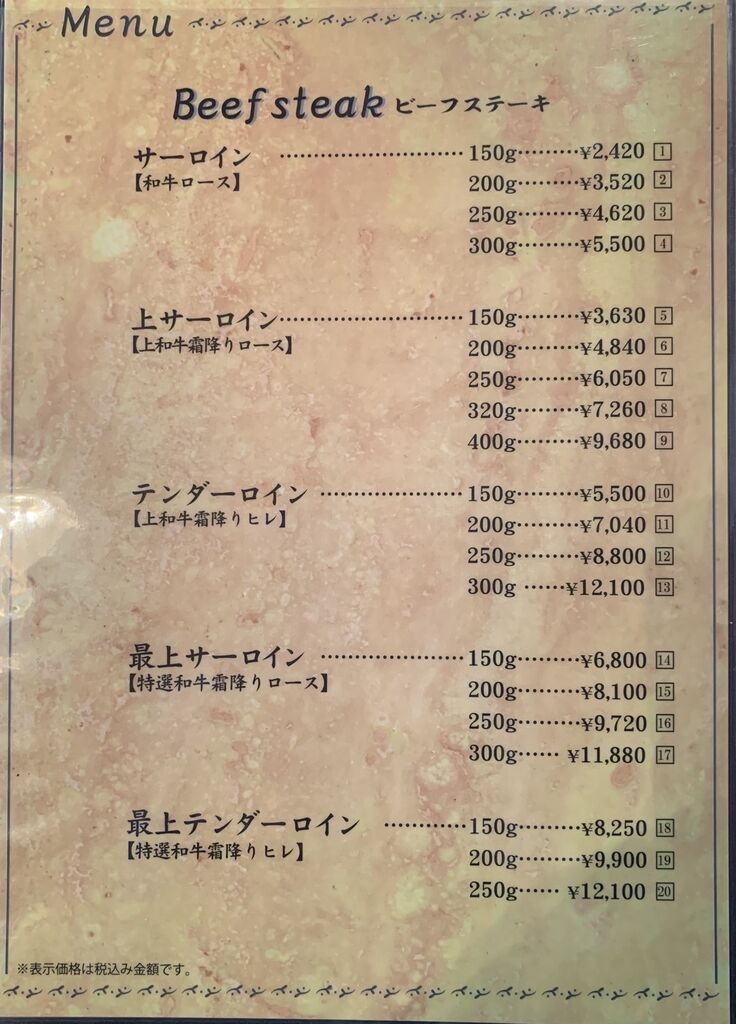 Menu
Beef steak ビーフステーキ
サーロイン ………………………… 150g………¥2,420 1
【和牛ロース】 200g………¥3,520 2
250g………¥4,620 3
300g………¥5,500 4
上サーロイン………………………… 150g………¥3,630 5
【上和牛霜降りロース】 200g………¥4,840 6
250g………¥6,050 7
320g………¥7,260 8
400g………¥9,680 9
テンダーロイン ………………… 150g………¥5,500 10
【上和牛霜降りヒレ】 200g………¥7,040 11
250g………¥8,800 12
300g ……¥12,100 13
最上サーロイン ………………… 150g………¥6,800 14
【特選和牛霜降りロース】 200g………¥8,100 15
250g………¥9,720 16
300g…… ¥11,880 17
最上テンダーロイン …………150g………¥8,250 18
【特選和牛霜降りヒレ】 200g………¥9,900 19
250g…… ¥12,100 20
※表示価格は税込み金額です。